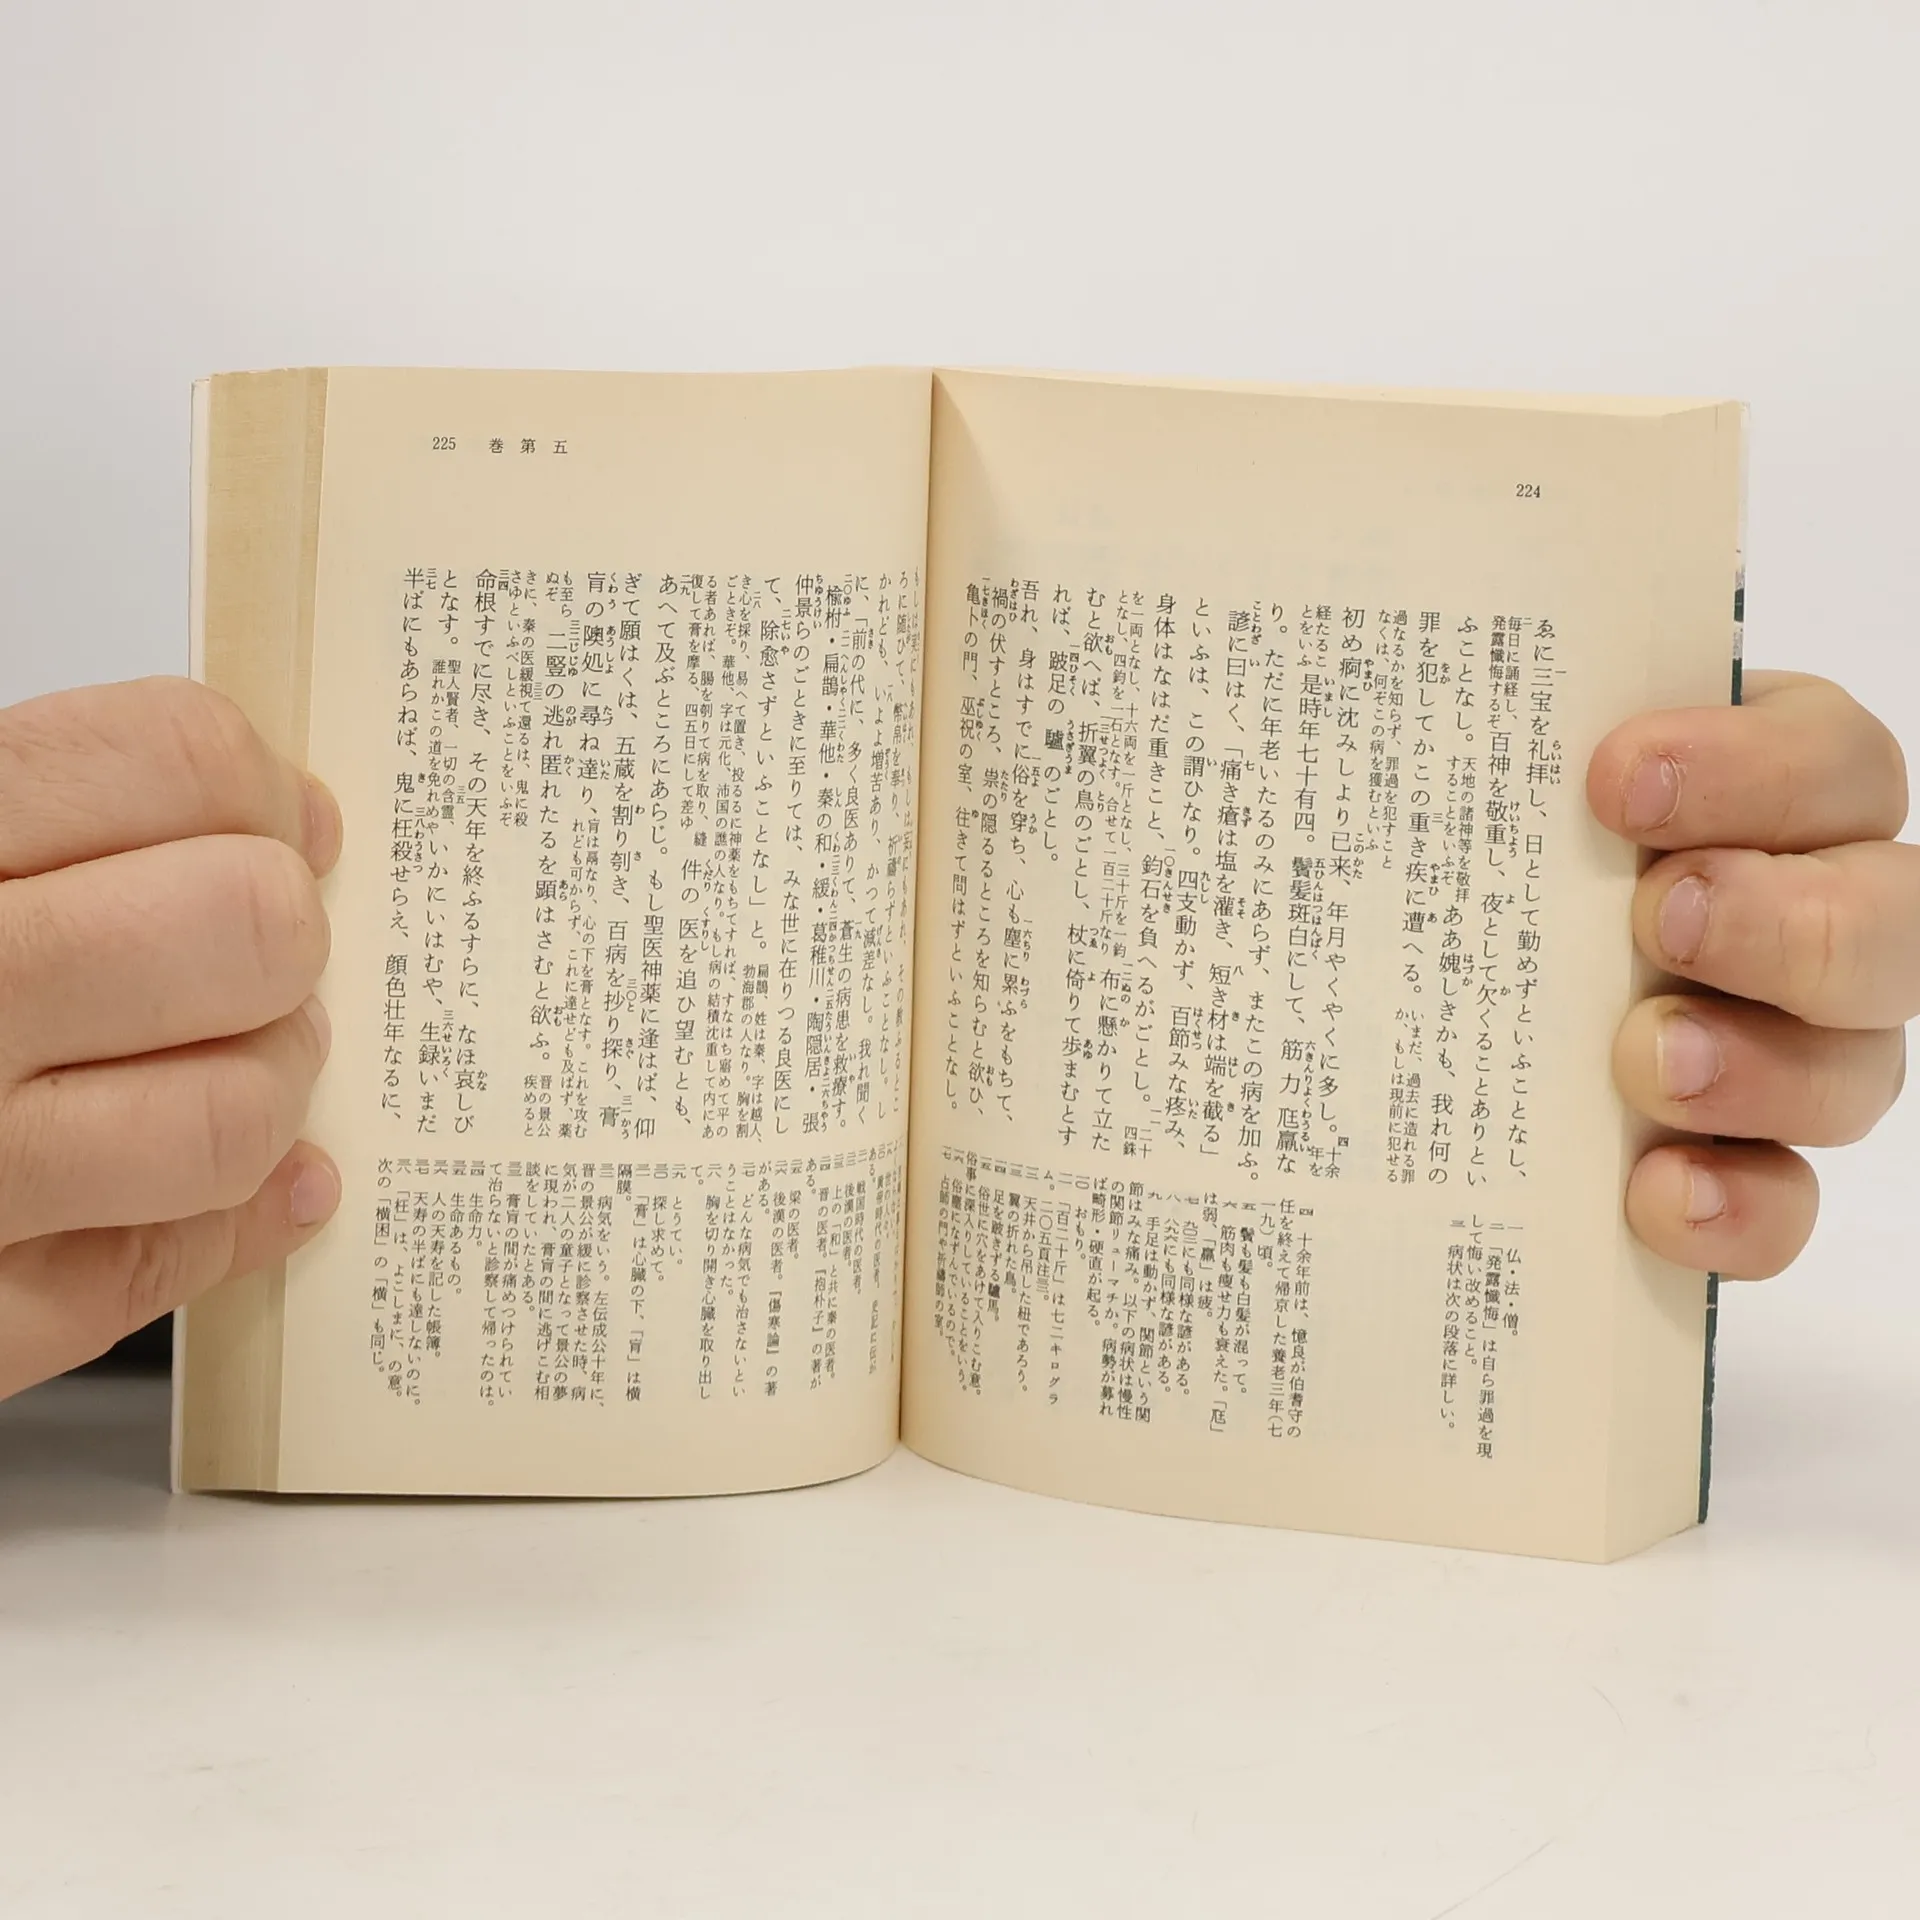 224
ゑに三宝を礼拝し、日として勤めずといふことなし、
毎日に誦経し、発露懺悔するぞ 百神を敬重し、夜として欠くることありとい
ふことなし。 天地の諸神等を敬拝することをいふぞ ああ媿しきかも、我れ何の
罪を犯してかこの重き疾に遭へる。 いまだ、過去に造れる罪か、もしは現前に犯せる
過なるかを知らず、罪過を犯すことなくは、何ぞこの病を獲むといふ
初め痾に沈みしより已来、年月やくやくに多し。 十余年を
経たることをいふ 是時年七十有四。鬢髪斑白にして、筋力尫羸な
り。ただに年老いたるのみにあらず、またこの病を加ふ。
諺に曰はく、「痛き瘡は塩を灌き、短き材は端を截る」
といふは、この謂ひなり。四支動かず、百節みな疼み、
身体はなはだ重きこと、鈞石を負へるがごとし。 二十四銖
を一両となし、十六両を一斤となし、三十斤を一鈞となし、四鈞を一石となす。合せて一百二十斤なり 布に懸かりて立た
むと欲へば、折翼の鳥のごとし、杖に倚りて歩まむとす
れば、跛足の驢のごとし。
吾れ、身はすでに俗を穿ち、心も塵に累ふをもちて、
禍の伏すところ、祟の隠るるところを知らむと欲ひ、
亀卜の門、巫祝の室、往きて問はずといふことなし。
一 仏・法・僧。
二 「発露懺悔」は自ら罪過を現
して悔い改めること。
三 病状は次の段落に詳しい。
四 十余年前は、憶良が伯耆守の
任を終えて帰京した養老三年(七
一九)頃。
五 鬢も髪も白髪が混って。
六 筋肉も痩せ力も衰えた。「尫」
は弱、「羸」は疲。
七 九〇三にも同様な諺がある。
八 八六六にも同様な諺がある。
九 手足は動かず、関節という関
節はみな痛み。以下の病状は慢性
の関節リューマチか。病勢が募れ
ば畸形・硬直が起る。
一〇 おもり。
一一 「百二十斤」は七二キログラ
ム。二〇五頁注三。
一二 天井から吊した紐であろう。
一三 翼の折れた鳥。
一四 足を跛きずる驢馬。
一五 俗世に穴をあけて入りこむ意。
俗事に深入りしていることをいう。
一六 俗塵になずんでいるので。
一七 占師の門や祈禱師の室。
225 巻第五
もしは実にもあれ、もしは妄にもあれ、その教ふるとこ
ろに随ひて、幣帛を奉り、祈禱らずといふことなし。し
かれども、いよよ増苦あり、かつて減差なし。我れ聞く
に、「前の代に、多く良医ありて、蒼生の病患を救療す。
楡柎・扁鵲・華他・秦の和・緩・葛稚川・陶隠居・張
仲景らのごときに至りては、みな世に在りつる良医にし
て、除愈さずといふことなし」と。 扁鵲、姓は秦、字は越人、勃海郡の人なり。胸を割
き心を採り、易へて置き、投るるに神薬をもちてすれば、すなはち寤めて平の
ごときぞ。華他、字は元化、沛国の譙の人なり。もし病の結積沈重して内にあ
る者あれば、腸を刳りて病を取り、縫
復して膏を摩る、四五日にして差ゆ 件の医を追ひ望むとも、
あへて及ぶところにあらじ。もし聖医神薬に逢はば、仰
ぎて願はくは、五蔵を割り刳き、百病を抄り探り、膏
肓の隩処に尋ね達り、 肓は鬲なり、心の下を膏となす。これを攻むれども可からず、これに達せども及ばず、薬
も至らぬぞ 二竪の逃れ匿れたるを顕はさむと欲ふ。 晋の景公疾めると
きに、秦の医緩視て還るは、鬼に殺さゆといふべしといふことをいふぞ
命根すでに尽き、その天年を終ふるすらに、なほ哀しび
となす。 聖人賢者、一切の含霊、誰れかこの道を免れめや いかにいはむや、生録いまだ
半ばにもあらねば、鬼に枉殺せらえ、顔色壮年なるに、
戦国時代の医者。
後漢の医者。
上の「和」と共に秦の医者。
晋の医者。『抱朴子』の著が
ある。
二五 梁の医者。
二六 後漢の医者。『傷寒論』の著
がある。
二七 どんな病気でも治さないとい
うことはなかった。
二八 胸を切り開き心臓を取り出し
て。
二九 とうてい。
三〇 探し求めて。
三一 「膏」は心臓の下、「肓」は横
隔膜。
三二 病気をいう。左伝成公十年に、
晋の景公が緩に診察させた時、病
気が二人の童子となって景公の夢
に現われ、膏肓の間に逃げこむ相
談をしていたとある。
三三 膏肓の間が痛めつけられてい
て治らないと診察して帰ったのは。
三四 生命力。
三五 生命あるもの。
三六 人の天寿を記した帳簿。
三七 天寿の半ばにも達しないのに。
三八 「枉」は、よこしまに、の意。
次の「横困」の「横」も同じ。